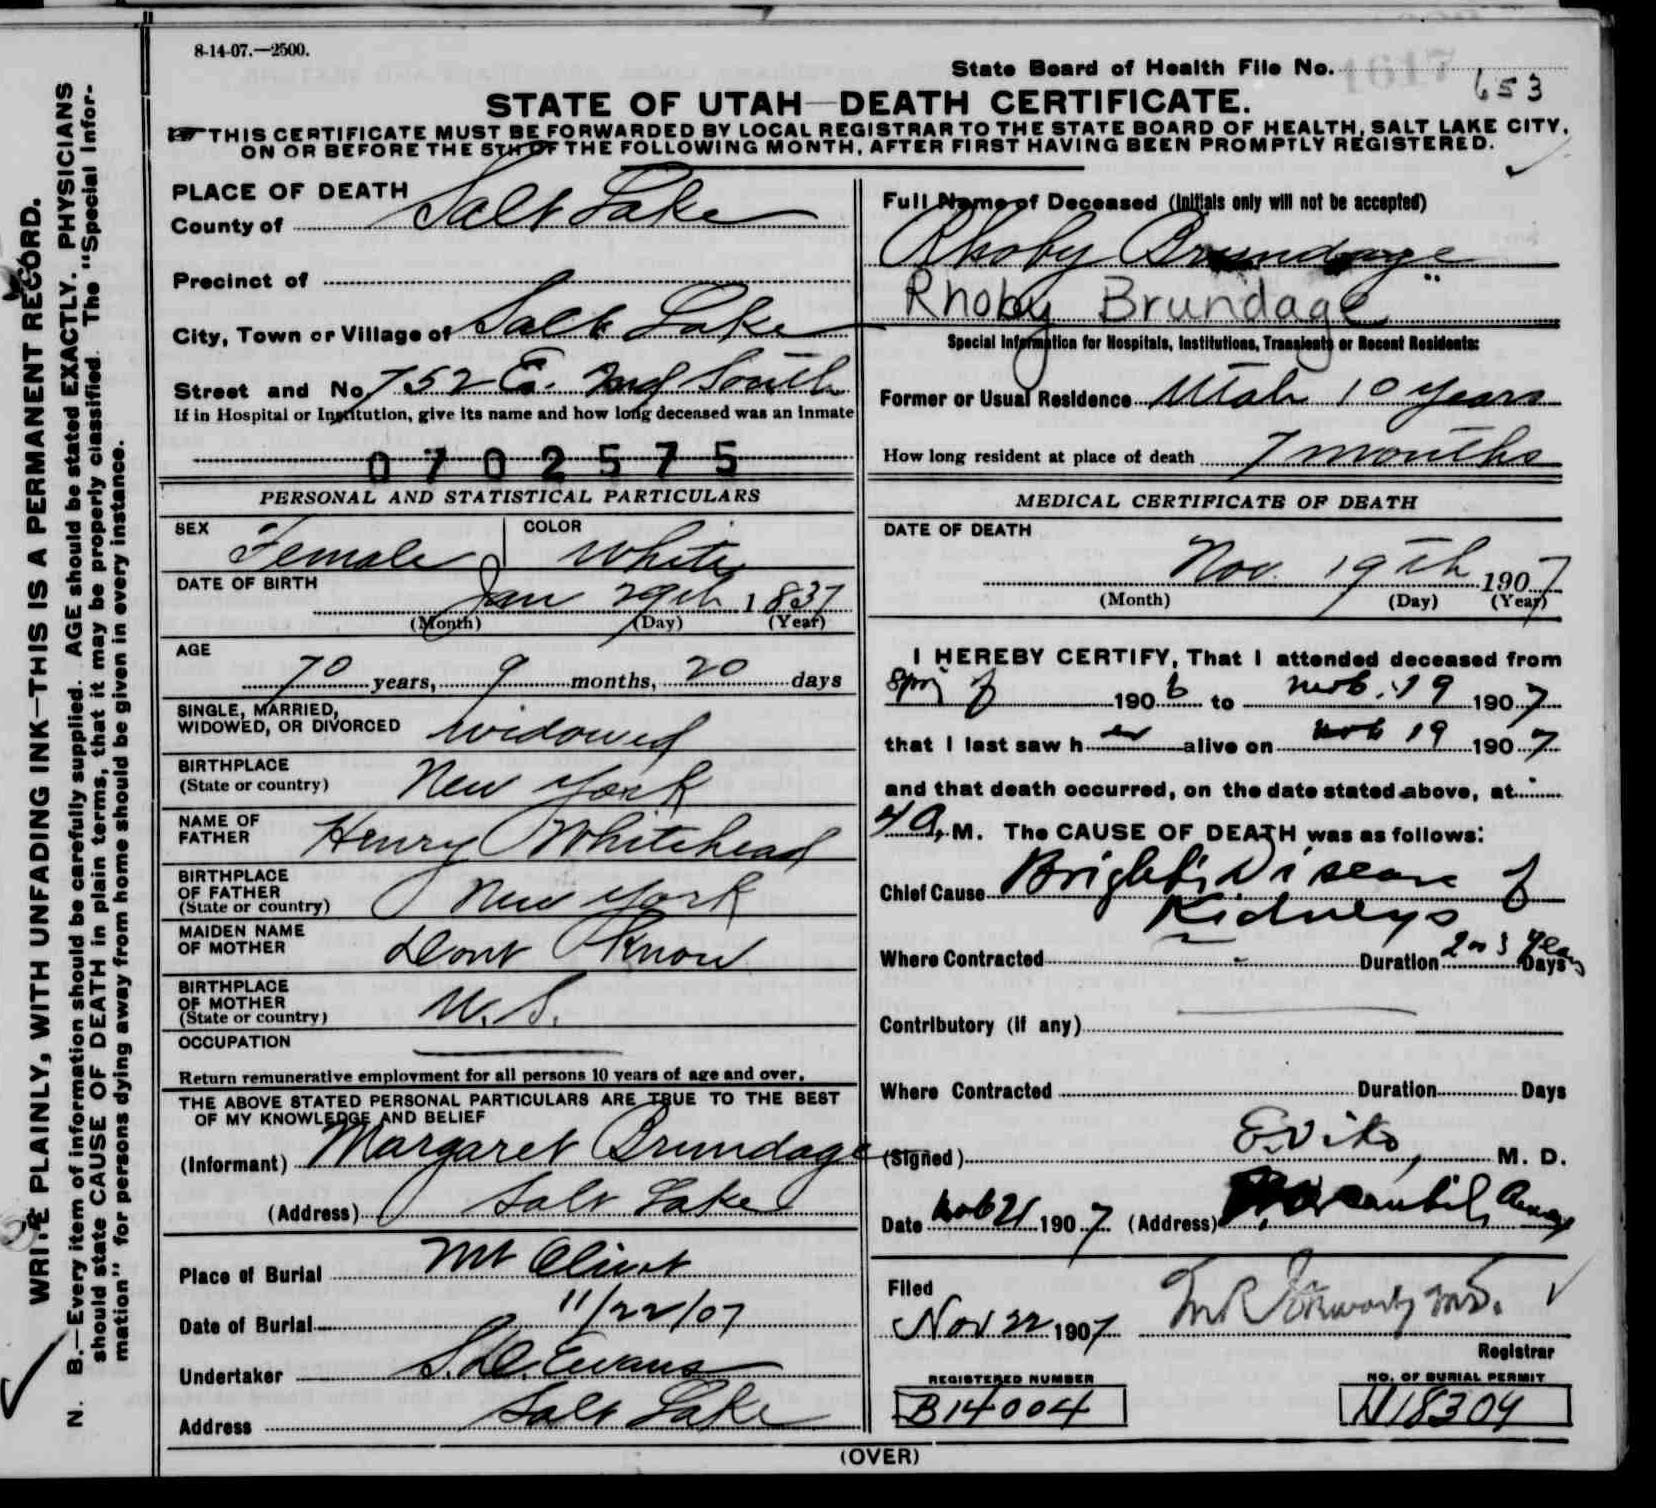 8-14-07.—2500.
State Board of Health File No. 1617 653
STATE OF UTAH—DEATH CERTIFICATE.
THIS CERTIFICATE MUST BE FORWARDED BY LOCAL REGISTRAR TO THE STATE BOARD OF HEALTH, SALT LAKE CITY,
ON OR BEFORE THE 5TH OF THE FOLLOWING MONTH, AFTER FIRST HAVING BEEN PROMPTLY REGISTERED.
WRITE PLAINLY, WITH UNFADING INK—THIS IS A PERMANENT RECORD.
N. B.—Every item of information should be carefully supplied. AGE should be stated EXACTLY. PHYSICIANS
should state CAUSE OF DEATH in plain terms, that it may be properly classified. The "Special Infor-
mation" for persons dying away from home should be given in every instance.
PLACE OF DEATH
County of Salt Lake
Precinct of
City, Town or Village of Salt Lake
Street and No. 752 E. 2nd South
If in Hospital or Institution, give its name and how long deceased was an inmate
0702575
PERSONAL AND STATISTICAL PARTICULARS
SEX Female COLOR White
DATE OF BIRTH Jan 29th 1837
(Month) (Day) (Year)
AGE
70 years, 9 months, 20 days
SINGLE, MARRIED,
WIDOWED, OR DIVORCED widowed
BIRTHPLACE
(State or country) New York
NAME OF
FATHER Henry Whitehead
BIRTHPLACE
OF FATHER
(State or country) New York
MAIDEN NAME
OF MOTHER Dont Know
BIRTHPLACE
OF MOTHER
(State or country) U. S.
OCCUPATION
Return remunerative employment for all persons 10 years of age and over.
THE ABOVE STATED PERSONAL PARTICULARS ARE TRUE TO THE BEST
OF MY KNOWLEDGE AND BELIEF
(Informant) Margaret Brundage
(Address) Salt Lake
Place of Burial Mt Olivet
Date of Burial 11/22/07
Undertaker S. D. Evans
Address Salt Lake
Full Name of Deceased (Initials only will not be accepted)
Rhoby Brundage
Rhoby Brundage
Special Information for Hospitals, Institutions, Transients or Recent Residents:
Former or Usual Residence Utah 10 years
How long resident at place of death 7 months
MEDICAL CERTIFICATE OF DEATH
DATE OF DEATH
Nov. 19th 1907
(Month) (Day) (Year)
I HEREBY CERTIFY, That I attended deceased from
Spring of 1906 to Nov. 19 1907
that I last saw h er alive on Nov 19 1907
and that death occurred, on the date stated above, at
4 A, M. The CAUSE OF DEATH was as follows:
Chief Cause Bright's Disease of
Kidneys
Where Contracted Duration 2 or 3 years Days
Contributory (if any)
Where Contracted Duration Days
(Signed) M. D.
Date Nov 21 1907 (Address)
Filed
Nov 22 1907
Registrar
REGISTERED NUMBER
B14004
NO. OF BURIAL PERMIT
(OVER)